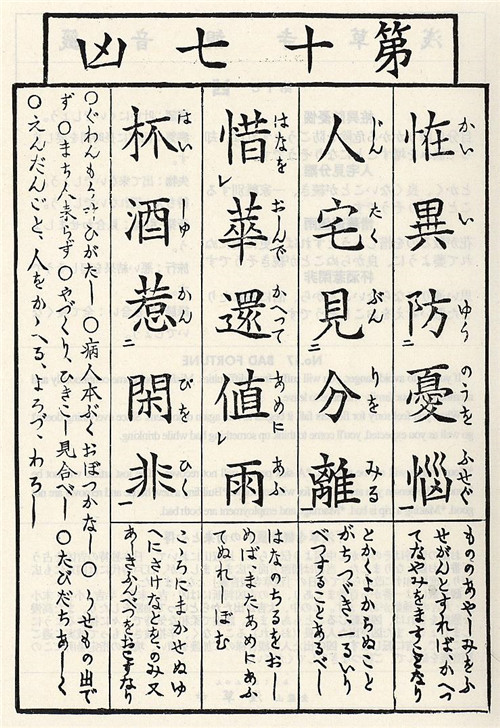 第十七凶
恠異防憂惱
かい い ゆう のうを ふせぐ
もののあやしみをふ
せがんとすればかへつ
てなやみをますことなり
人宅見分離
じん たく ぶん りを みる
とかくよからぬこと
がちつづき、一るいり
べつすることあるべし
惜華還値雨
はなを おしんで かへつて あめに あふ
はなのちるをおし
めば、またあめにあふ
てぬれしほむ
杯酒惹閑非
はい しゆ かん びを ひく
こころにまかせぬゆ
へ、さけなどをのみ又
あしきふんべつをおこすなり
〇ぐわんもうかなひがたし 〇病人本ぶくおぼつかなし 〇うせもの出で
ず 〇まち人来らず 〇やづくり、ひきこし見合べし 〇たびだちあしく
〇えんだんごと、人をかゝへる、よろづ、わろし